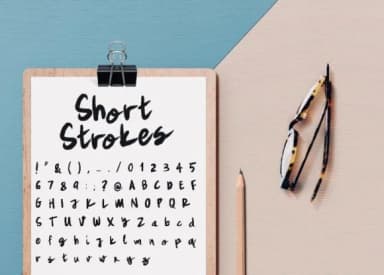 Short
Strokes
! " & ( ) , - . / 0 1 2 3 4 5
6 7 8 9 : ; ? @ A B C D E F
G H I J K L M N O P Q R
S T U V W X Y Z a b c d
e f g h i j k l m n o p q
r s t u v w x y z